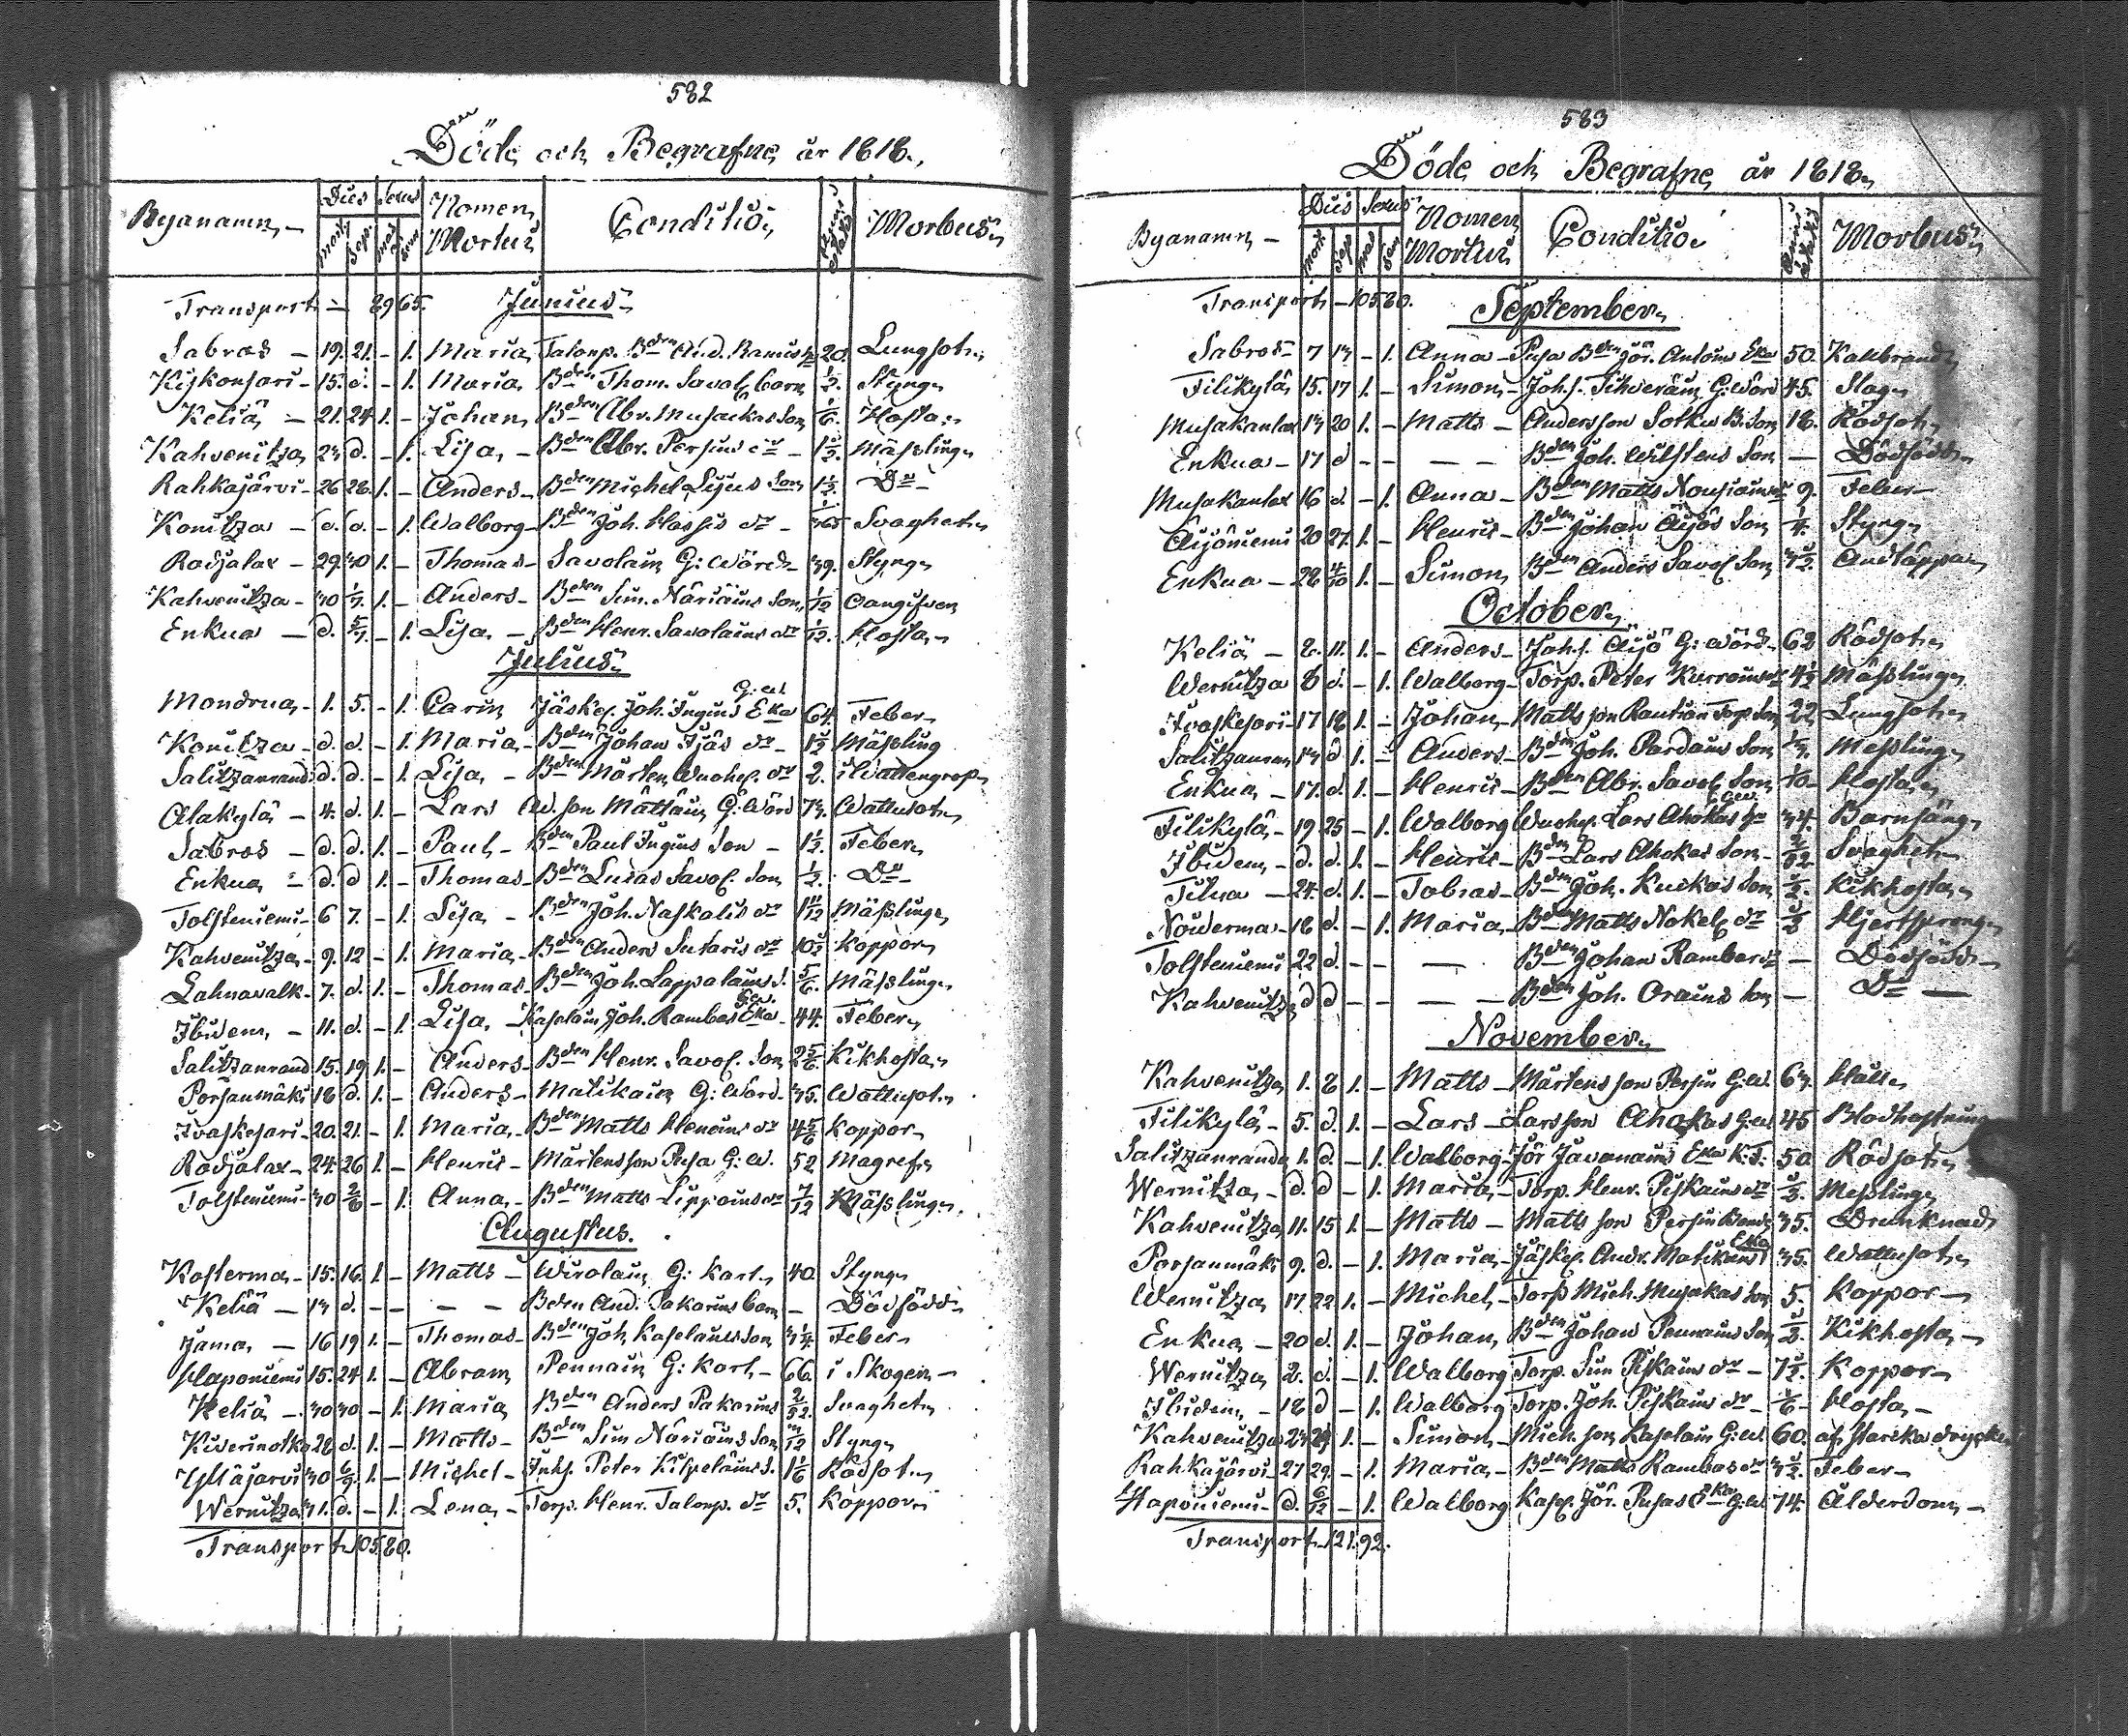 582
Döde och Begrafne år 1818.
Byanamn Dies Sexus Nomen Mortui Conditio Anni ætatis Morbus
mort. Sep. mas fem
Transport 89 65. Junius
Sabros 19. 21. - 1. Maria Talonp. Bden And. Ramus 20. Lungsot
Kiskonsari 15. d. - 1. Maria Bden Thom. Savol. barn 1/2. Styng
Keliä 21. 24 1. - Johan Bden Abr. Musackas Son 1/6. Hosta
Kahvenitza 23 d. - 1. Lisa Bden Abr. Persins dr 1 1/2. Mässling
Rahkajärvi 26 28. 1. - Anders Bden Michel Lijus Son 1 1/2. Do
Konitza d. d. - 1. Walborg Bden Joh. Hassis dr 1/365 Svaghet
Radjalax 29. 30 1. - Thomas Savolain G: Wärd 39. Styng
Kahvenitza 30 1/7. 1. - Anders Bden Sim. Näriäins Son 1/12 Oangifven
Enkua d. 5/7. - 1. Lisa Bden Henr. Savolains dr 1/12. Hosta
Julius
Mondrua 1. 5. - 1. Carin Jäskel. Joh. Ingins G: w. Eka 64. Feber
Konitza d. d. - 1. Maria Bden Johan Ijäs dr 1 1/2 Mässling
Salitzanrand d. d. - 1. Lisa Bden Mårten Wuohel. dr 2. i Wattengrop
Alakylä 4. d. 1. - Lars And. Son Mättäin G: Wärd 73. Wattusot
Sabros d. d. 1. - Paul Bden Paul Ingins Son 1 1/2. Feber
Enkua d. d 1. - Thomas Bden Lucas Savol. Son 1/2. Do
Tolsteniemi 6 7. - 1. Lisa Bden Joh. Naskalis dr 1 11/12 Mässling
Kahvenitza 9. 12 - 1. Maria Bden Anders Sutaris dr 10 1/2 Koppor
Lahnavalk. 7. d. 1. - Thomas Bden Joh. Lappalains S. 5/6. Mässling
Ibidem 11. d. - 1. Lisa Kapelain Joh. Rambas G: w. Eka 44. Feber
Salitzanrand 15. 19 1. - Anders Bden Henr. Savol. Son 2 5/6. Kikhosta
Porsanmäki 18 d. 1. - Anders Matikain G: Wärd 35. Wattusot
Ivaskesari 20. 21. - 1. Maria Bden Matts Henoins dr 4 5/6 Koppor
Radjalax 24. 26 1. - Henric Mårtensson Pusa G: W. 52 Magref
Tolsteniemi 30 2/8 - 1. Anna Bden Matts Lippoins dr 7/12 Mässling
Augustus.
Kosterma 15. 16. 1. - Matts Wirolain G: Karl 40 Styng
Keliä 13 d. - - - - Bden And. Pakarins barn - Dödfödd
Jama 16 19 1. - Thomas Bden Joh. Kapelains Son 3 1/4. Feber
Haponiemi 15. 24 1. - Abram Pennain G: Karl 66. i Skogen
Keliä 30 30 - 1. Maria Bden Anders Pakarins 2/52. Svaghet
Kiverinotko 28 d. 1. - Matts Bden Sim Näriäins Son 3/12 Styng
Ylläjärvi 30 6/9. 1. - Michel Inhs. Peter Kilpeläins S. 1 1/6 Rödsot
Wernitza 31. d. - 1. Lena Torp. Henr. Talonp. dr 5. Koppor
Transport 105. 80.
583
Döde och Begrafne år 1818.
Byanamn Dies Sexus Nomen Mortui Conditio Anni ætatis Morbus
mort Sep mas fem
Transport 105 80. September
Sabros 7 13 - 1. Anna Pusa Bden Jör. Antoin Eka 50. Kallbrand
Filikylä 15. 17 1. - Simon Joh. s. Tihveräin G: Wärd 45. Slag
Musakanlax 13 20 1. - Matts Andersson Sotku B. Son 18. Rödsot
Enkua 17 d - - - - Bden Joh. Wilskens Son - Dödfödd
Musakanlax 16 d. - 1. Anna Bden Matts Nousiains dr 9. Feber
Äijöniemi 20 27. 1. - Henric Bden Johan Äijös Son 1/4. Styng
Enkua 28 4/10 1. - Simon Bden Anders Savol. Son 3 1/2. Andtäppa
October
Keliä 2. 11. 1. - Anders Joh. s. Äijö G: Wärd 62 Rödsot
Wernitza 8 d. - 1. Walborg Torp. Peter Kurroins dr 4 1/2 Mässling
Ivaskesari 17 18 1. - Johan Matts son Rautiain Torp. Son 22 Lungsot
Salitzanran 13 d 1. - Anders Bden Joh. Pardains Son 1/3. Messling
Enkua 17. d. 1. - Henric Bden Abr. Savol. Son 1/10 Hosta
Filikylä 19 25 - 1. Walborg Wuohel. Lars Ahokas G: w. 34. Barnsäng
Ibidem d. d. 1. - Henric Bden Lars Ahokas Son 2/52 Svaghet
Tiura 24. d. 1. - Tobias Bden Joh. Kuikas Son 1/2. Kikhosta
Nouderma 18 d. - 1. Maria Bden Matts Nokel. dr 1/2 Hjertspreng
Tolsteniemi 22 d. - - - Bden Johan Rambas dr - Dödfödd
Kahvenitza d d - - - - Bden Joh. Orains Son - Do
November
Kahvenitza 1. 8 1. - Matts Mårtens son Persin G: w. 63. Håll
Filikylä 5. d. 1. - Lars Larsson Ahokas G: w. 45 Blodhostning
Salitzanranda 1. d. - 1. Walborg Jör Javanains Eka K: J. 50 Rödsot
Wernitza d. d - 1. Maria Torp. Henr. Piskains dr 1/2. Messling
Kahvenitza 11. 15 1. - Matts Matts son Persin Bonde 35. Drunknad
Porsanmäki 9. d. - 1. Maria Jäskel. Andr. Matikains Eka 35. Wattusot
Wernitza 17. 22 1. - Michel Torp Mich. Musakas Son 5. Koppor
Enkua 20 d. 1. - Johan Bden Johan Pennains Son 1/2. Kikhosta
Wernitza 2. d. - 1. Walborg Torp. Sim Piskains dr 7 1/2. Koppor
Ibidem 18 d - 1. Walborg Torp. Joh. Piskains dr 1/6 Hosta
Kahvenitza 23 29 1. - Simon Mich. son Kapelain G: w. 60. af starka drycker
Rahkajärvi 27 29. - 1. Maria Bden Matts Rambas dr 3 1/2. Feber
Haponiemi d. 6/12 - 1. Walborg Kapl. Jör. Pusas Eka G: w 74. Ålderdom
Transport 121. 92.